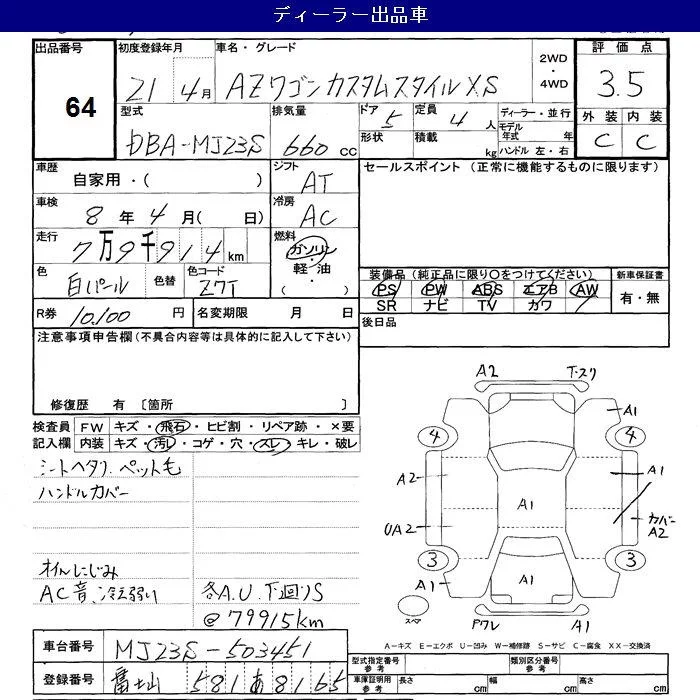 ディーラー出品車
出品番号 64
初度登録年月 21年 4月
車名・グレード AZワゴン カスタムスタイル XS
2WD・4WD
評価点 3.5
型式 DBA-MJ23S
排気量 660 cc
ドア 5
形状
定員 4人
積載 kg
ディーラー・並行
モデル年式 年
ハンドル 左・右
外装 C
内装 C
車歴 自家用・( )
シフト AT
セールスポイント (正常に機能するものに限ります)
車検 8年 4月( 日)
冷房 AC
走行 7万9千914km
燃料 ガソリン・軽・油・( )
色 白パール
色替
色コード Z7T
装備品 (純正品に限り○をつけてください)
PS PW ABS エアB AW
SR ナビ TV カワ
新車保証書 有・無
R券 10,100円
名変期限 月 日
後日品
注意事項申告欄(不具合内容等は具体的に記入して下さい)
修復歴 有 〔箇所
検査員記入欄
FW キズ・飛石・ヒビ割・リペア跡・×要
内装 キズ・汚レ・コゲ・穴・スレ・キレ・破レ
シートヘタリ、ペット毛
ハンドルカバー
オイルにじみ
AC音、冷え弱い
各A.U.下廻りS
@79915km
A2 T・スリ
A1
4 4
A2 A1 A1
UA2 カバーA2
3 3
A1 A1
スペア ワレ A1
A-キズ E-エクボ U-凹み W-補修跡 S-サビ C-腐食 XX-交換済
車台番号 MJ23S-503451
登録番号 富士山 581 あ 8165
型式指定番号 参考
類別区分番号 参考
車庫証明用 参考 長さ cm 幅 cm 高さ cm